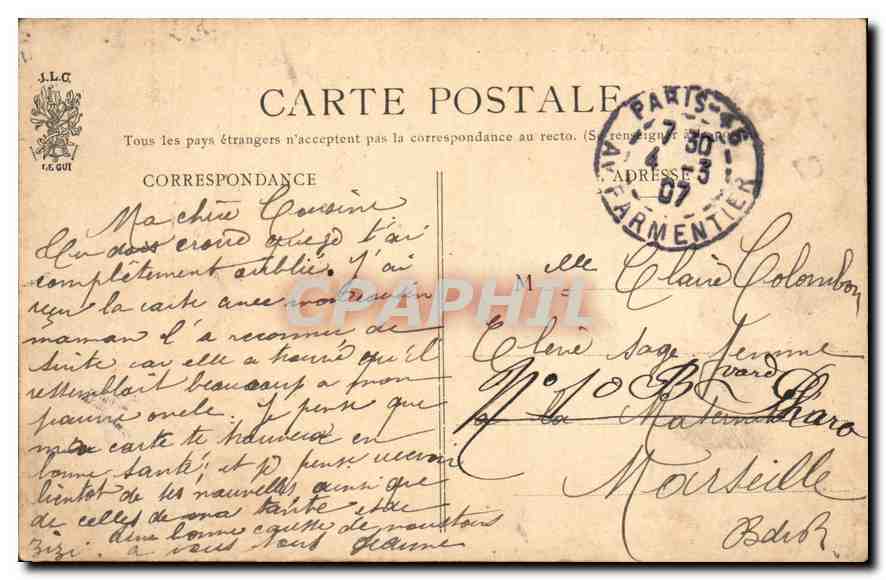 J.L.C.
LE GUI
CARTE POSTALE
Tous les pays étrangers n'acceptent pas la correspondance au recto. (Se renseigner à
CORRESPONDANCE
ADRESSE
PARIS-46
7 30
4 -3
07
AV. PARMENTIER
Ma chère Cousine
Tu dois croire que je t'ai
complètement oublié. J'ai
reçu la carte avec mon cousin
maman l'a reconnu de
suite car elle a trouvé qu'il
ressemblait beaucoup a mon
pauvre oncle. Je pense que
ma carte te trouvera en
bonne santé; et je pense recevoir
bientot de tes nouvelles ainsi que
de celles de ma tante et de
Zizi. une bonne de nous tous
a vous tous Jeanne
Mlle Claire Colombon
Elève sage femme
a la Maternité
No 10 Bvard Pharo
Marseille
B du R
CPAPHIL